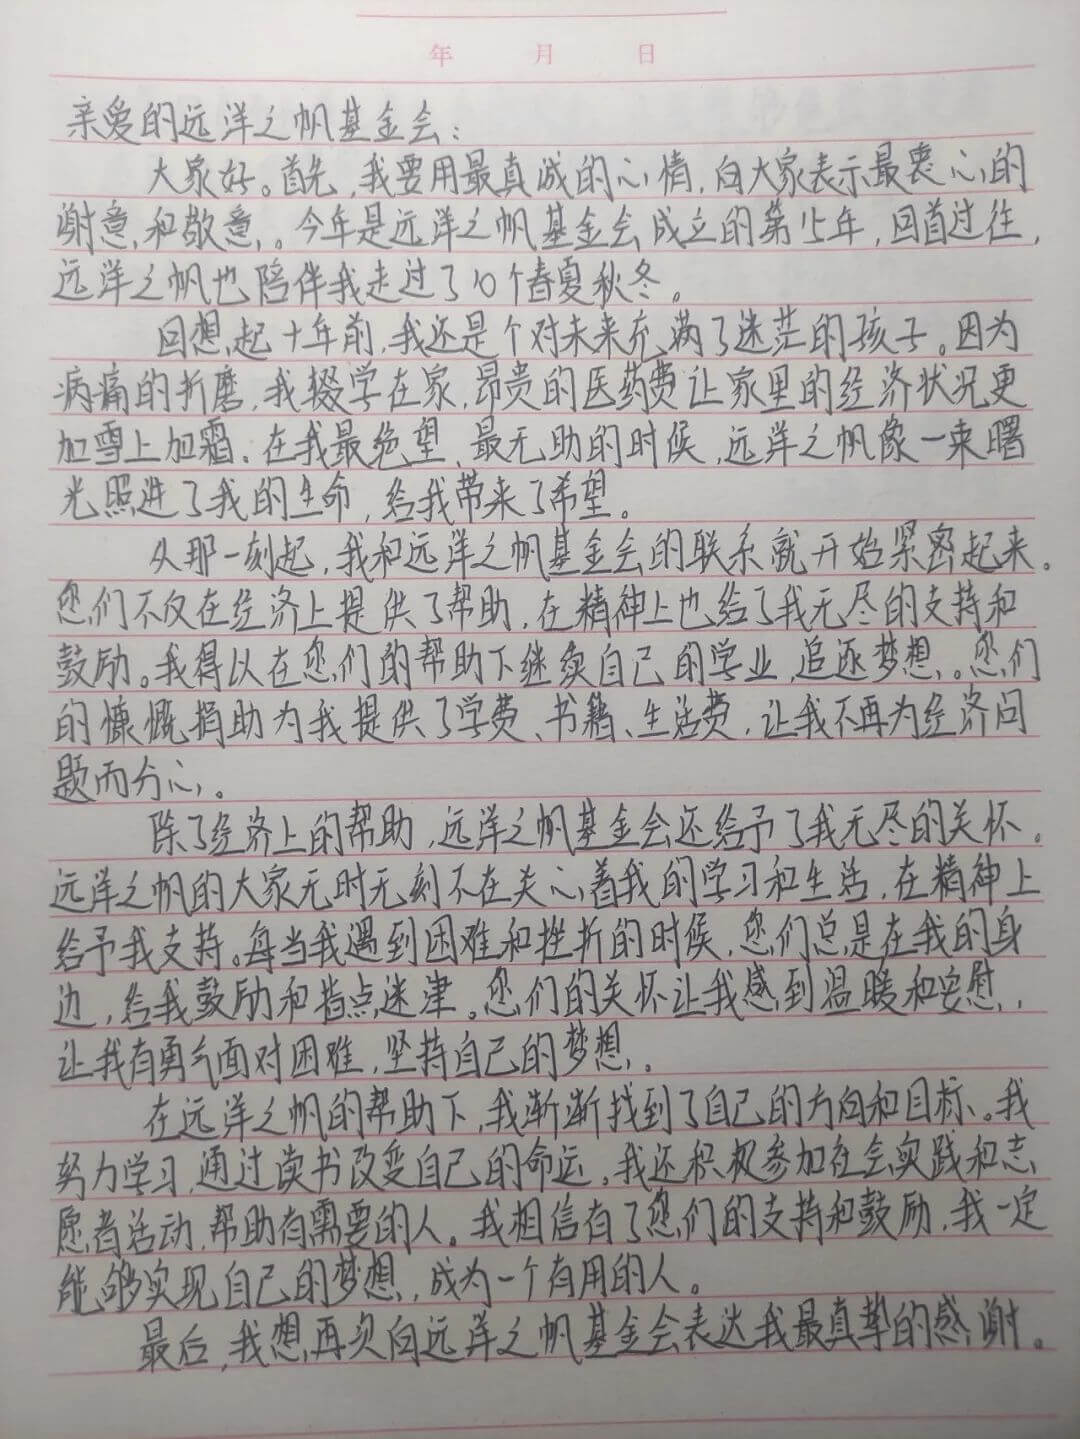 年 月 日
亲爱的远洋之帆基金会：
大家好。首先，我要用最真诚的心情，向大家表示最衷心的
谢意和敬意。今年是远洋之帆基金会成立的第15年，回首过往，
远洋之帆也陪伴我走过了10个春夏秋冬。
回想起十年前，我还是个对未来充满了迷茫的孩子。因为
病痛的折磨，我辍学在家，昂贵的医药费让家里的经济状况更
加雪上加霜。在我最绝望、最无助的时候，远洋之帆像一束曙
光照进了我的生命，给我带来了希望。
从那一刻起，我和远洋之帆基金会的联系就开始紧密起来。
您们不仅在经济上提供了帮助，在精神上也给了我无尽的支持和
鼓励。我得以在您们的帮助下继续自己的学业，追逐梦想。您们
的慷慨捐助为我提供了学费、书籍、生活费，让我不再为经济问
题而分心。
除了经济上的帮助，远洋之帆基金会还给予了我无尽的关怀。
远洋之帆的大家无时无刻不在关心着我的学习和生活，在精神上
给予我支持。每当我遇到困难和挫折的时候，您们总是在我的身
边，给我鼓励和指点迷津。您们的关怀让我感到温暖和安慰，
让我有勇气面对困难，坚持自己的梦想。
在远洋之帆的帮助下，我渐渐找到了自己的方向和目标。我
努力学习，通过读书改变自己的命运。我还积极参加社会实践和志
愿者活动，帮助有需要的人。我相信有了您们的支持和鼓励，我一定
能够实现自己的梦想，成为一个有用的人。
最后，我想再次向远洋之帆基金会表达我最真挚的感谢。